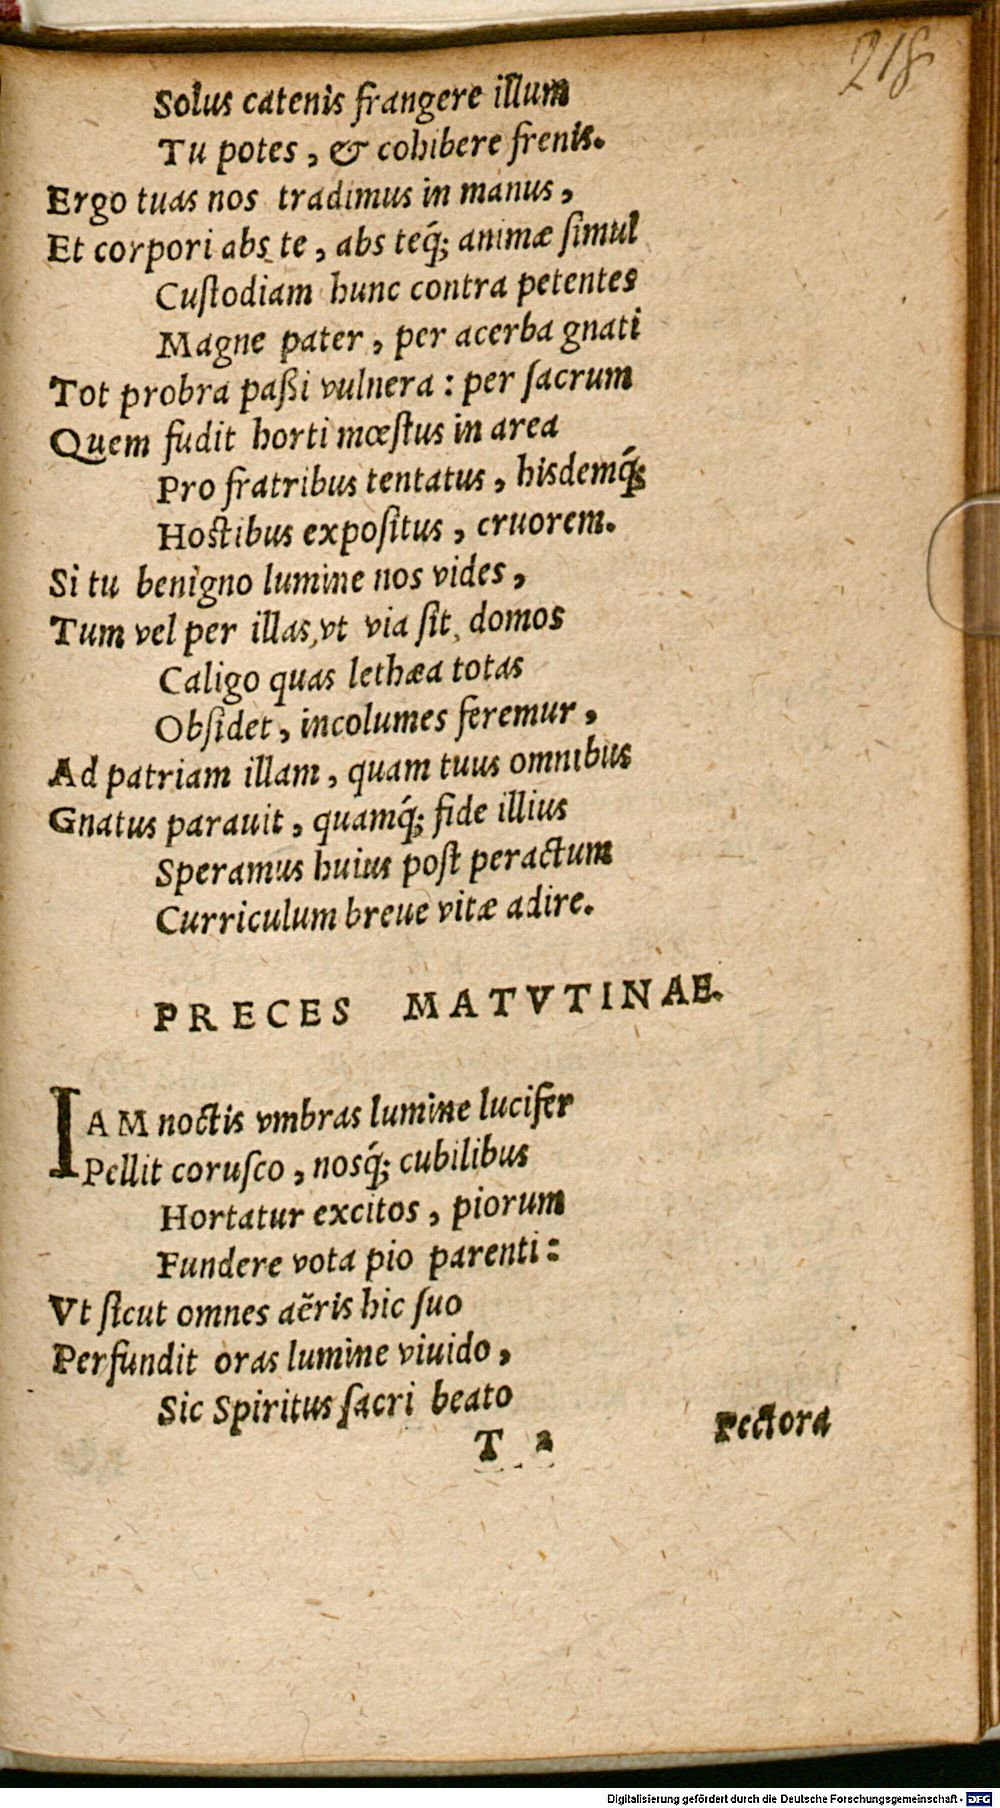 218
Solus catenis frangere illum
Tu potes, & cohibere frenis.
Ergo tuas nos tradimus in manus,
Et corpori abs te, abs teq́; animæ ſimul
Cuſtodiam hunc contra petentes
Magne pater, per acerba gnati
Tot probra paßi vulnera: per ſacrum
Quem fudit horti mœſtus in area
Pro fratribus tentatus, hisdemq́;
Hoſtibus expoſitus, cruorem.
Si tu benigno lumine nos vides,
Tum vel per illas, vt via ſit, domos
Caligo quas lethæa totas
Obſidet, incolumes feremur,
Ad patriam illam, quam tuus omnibus
Gnatus parauit, quamq́; fide illius
Speramus huius poſt peractum
Curriculum breue vitæ adire.
PRECES MATVTINAE.
IAM noctis vmbras lumine lucifer
Pellit coruſco, nosq́; cubilibus
Hortatur excitos, piorum
Fundere vota pio parenti:
Vt ſicut omnes aëris hic ſuo
Perfundit oras lumine viuido,
Sic Spiritus ſacri beato
T 2 Pectora
Digitalisierung gefördert durch die Deutsche Forschungsgemeinschaft - DFG